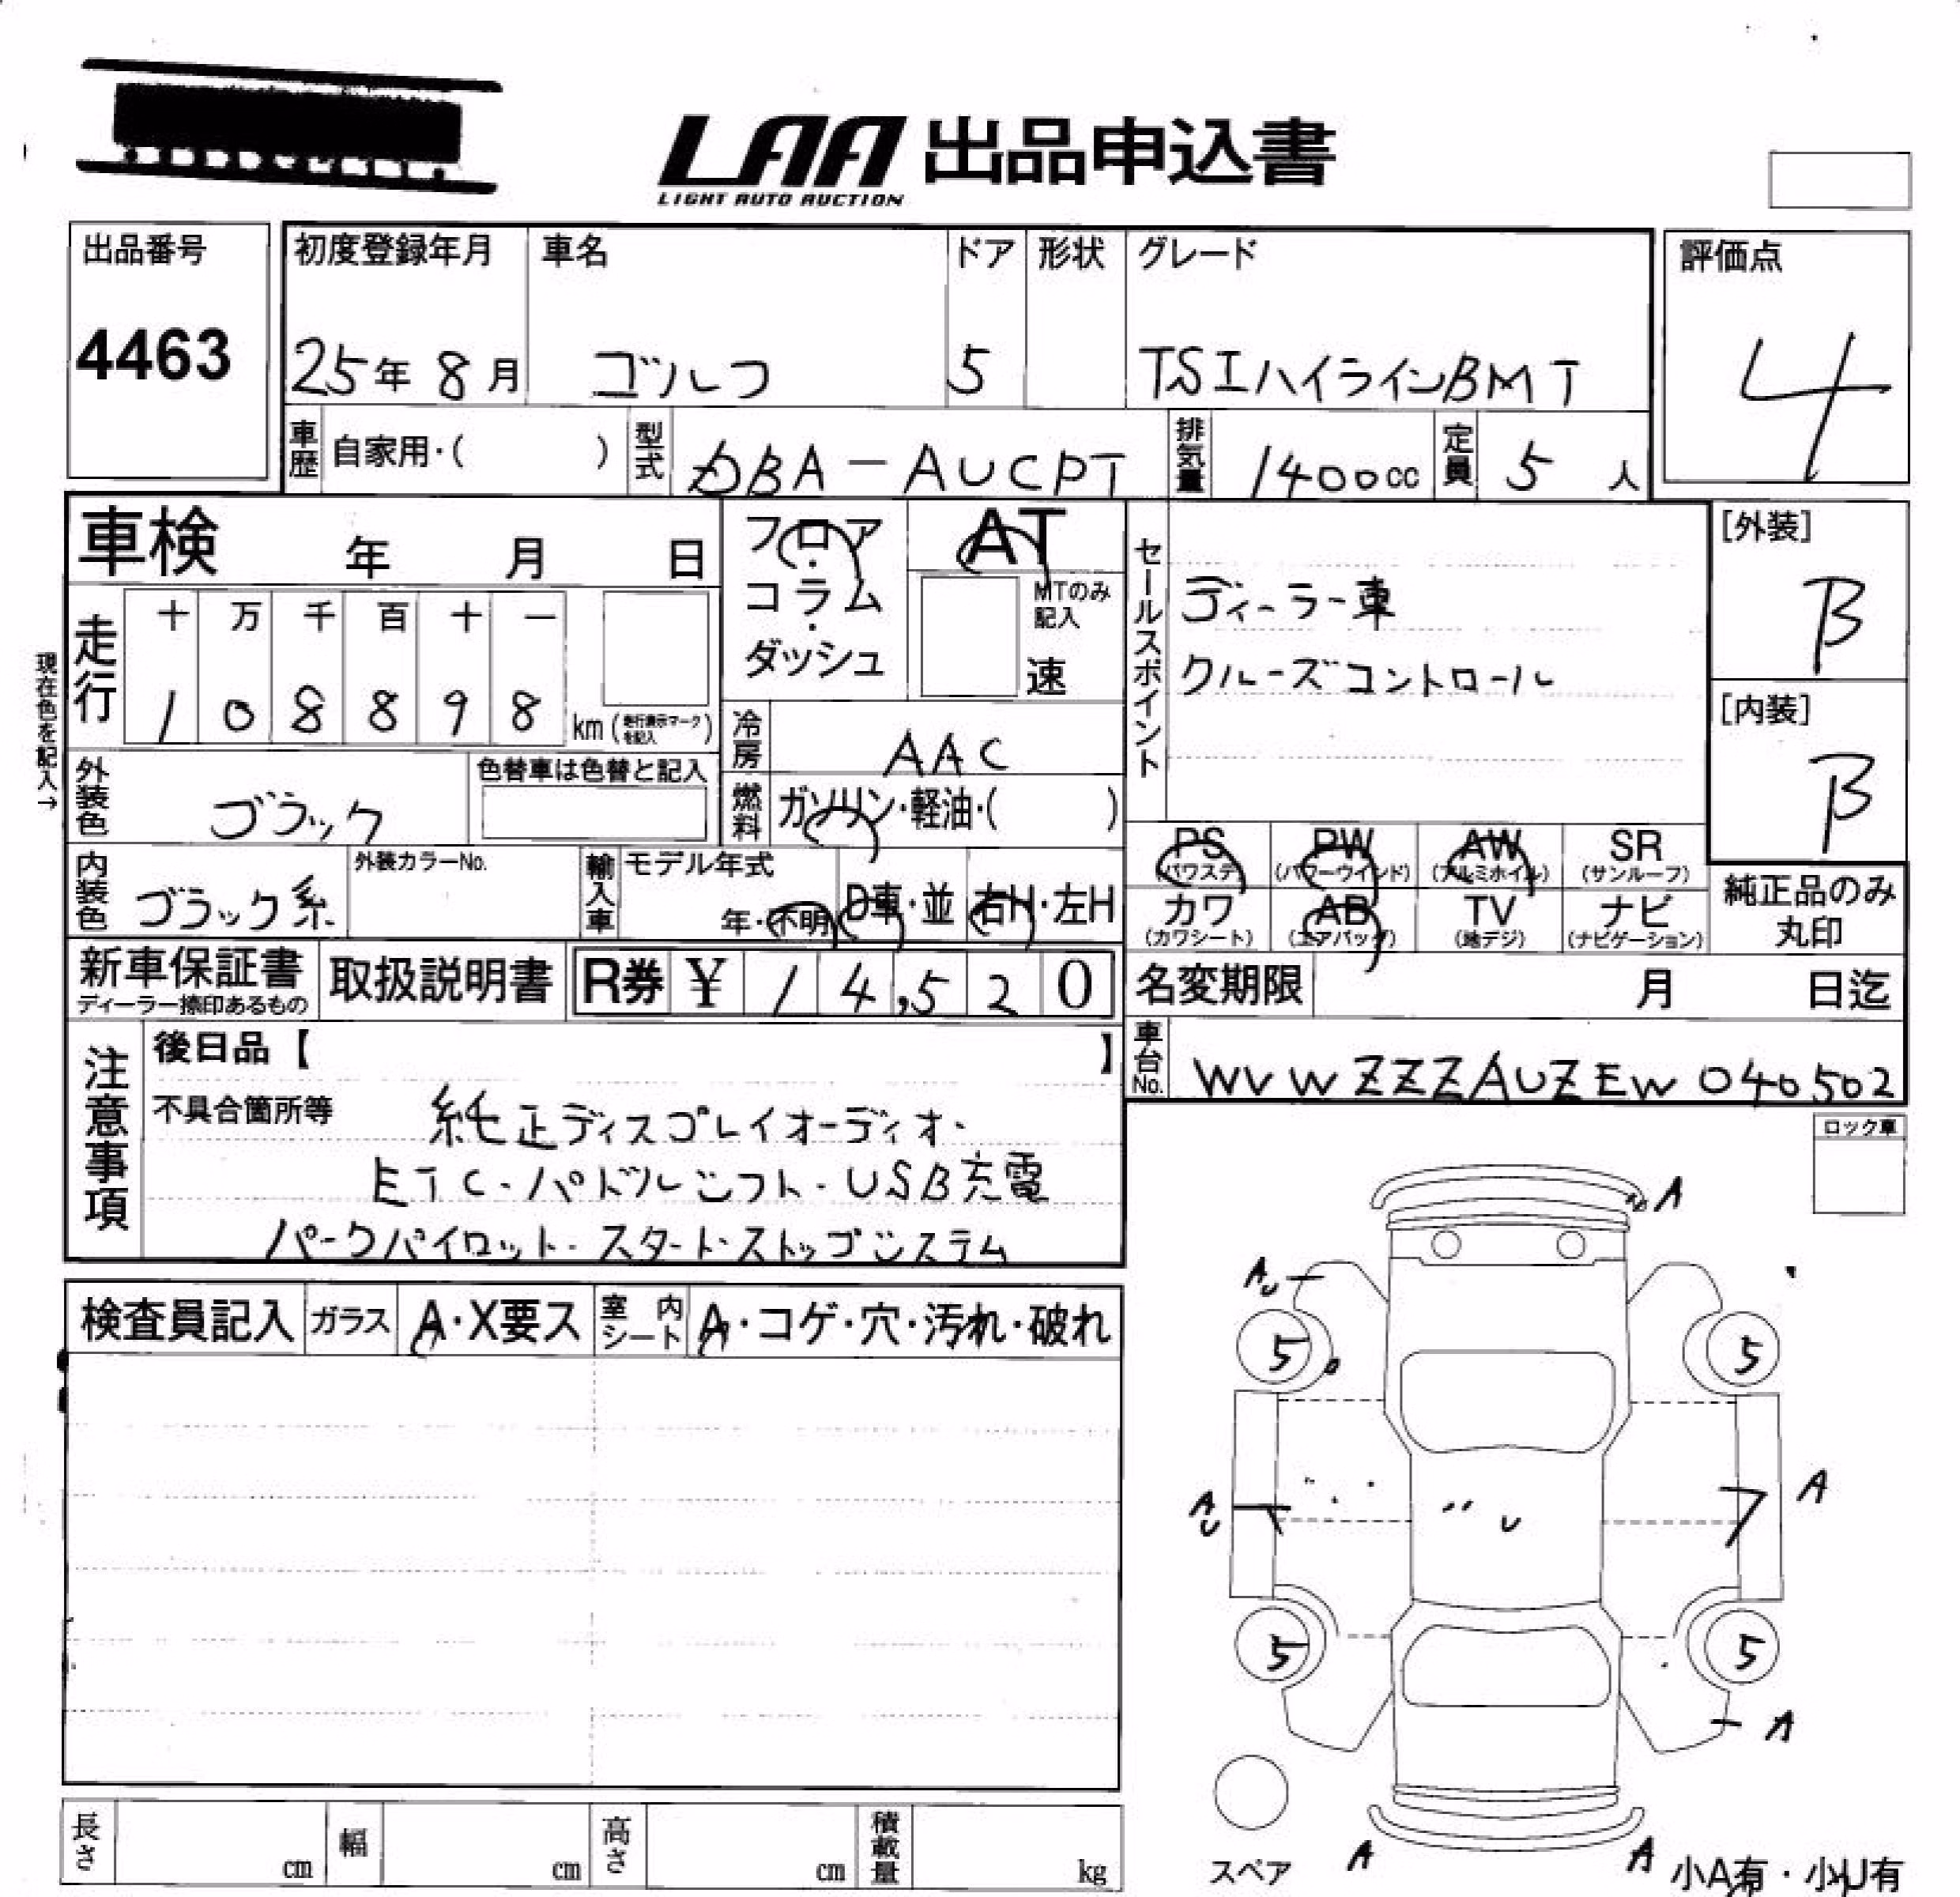 LAA 出品申込書
LIGHT AUTO AUCTION
出品番号
4463
初度登録年月 車名 ドア 形状 グレード
25年 8月 ゴルフ 5 TSIハイラインBMT
評価点
4
車歴 自家用・( ) 型式 DBA-AUCPT 排気量 1400cc 定員 5 人
車検 年 月 日
フロア・コラム・ダッシュ
AT
MTのみ記入
速
セールスポイント
ディーラー車
クルーズコントロール
[外装]
B
[内装]
B
現在色を記入→
走行 十 万 千 百 十 一
1 0 8 8 9 8 km (走行表示マークを記入)
冷房 AAC
外装色 ブラック 色替車は色替と記入
燃料 ガソリン・軽油・( )
内装色 ブラック系 外装カラーNo. 輸入車 モデル年式
年・不明 D車・並 右H・左H
PS (パワステ) PW (パワーウインド) AW (アルミホイル) SR (サンルーフ)
カワ (カワシート) AB (エアバッグ) TV (地デジ) ナビ (ナビゲーション)
純正品のみ
丸印
新車保証書 取扱説明書 R券 ¥ 14,520
ディーラー捺印あるもの
名変期限 月 日迄
車台No. WVWZZZAUZEW040502
注意事項
後日品【 】
不具合箇所等 純正ディスプレイオーディオ・
ETC・パドルシフト・USB充電
パークパイロット・スタート・ストップシステム
ロック車
検査員記入 ガラス A・X要ス 室内シート A・コゲ・穴・汚れ・破れ
A
AU
5 5
AU U A
5 5
A
スペア A A 小A有・小U有
長さ cm 幅 cm 高さ cm 積載量 kg